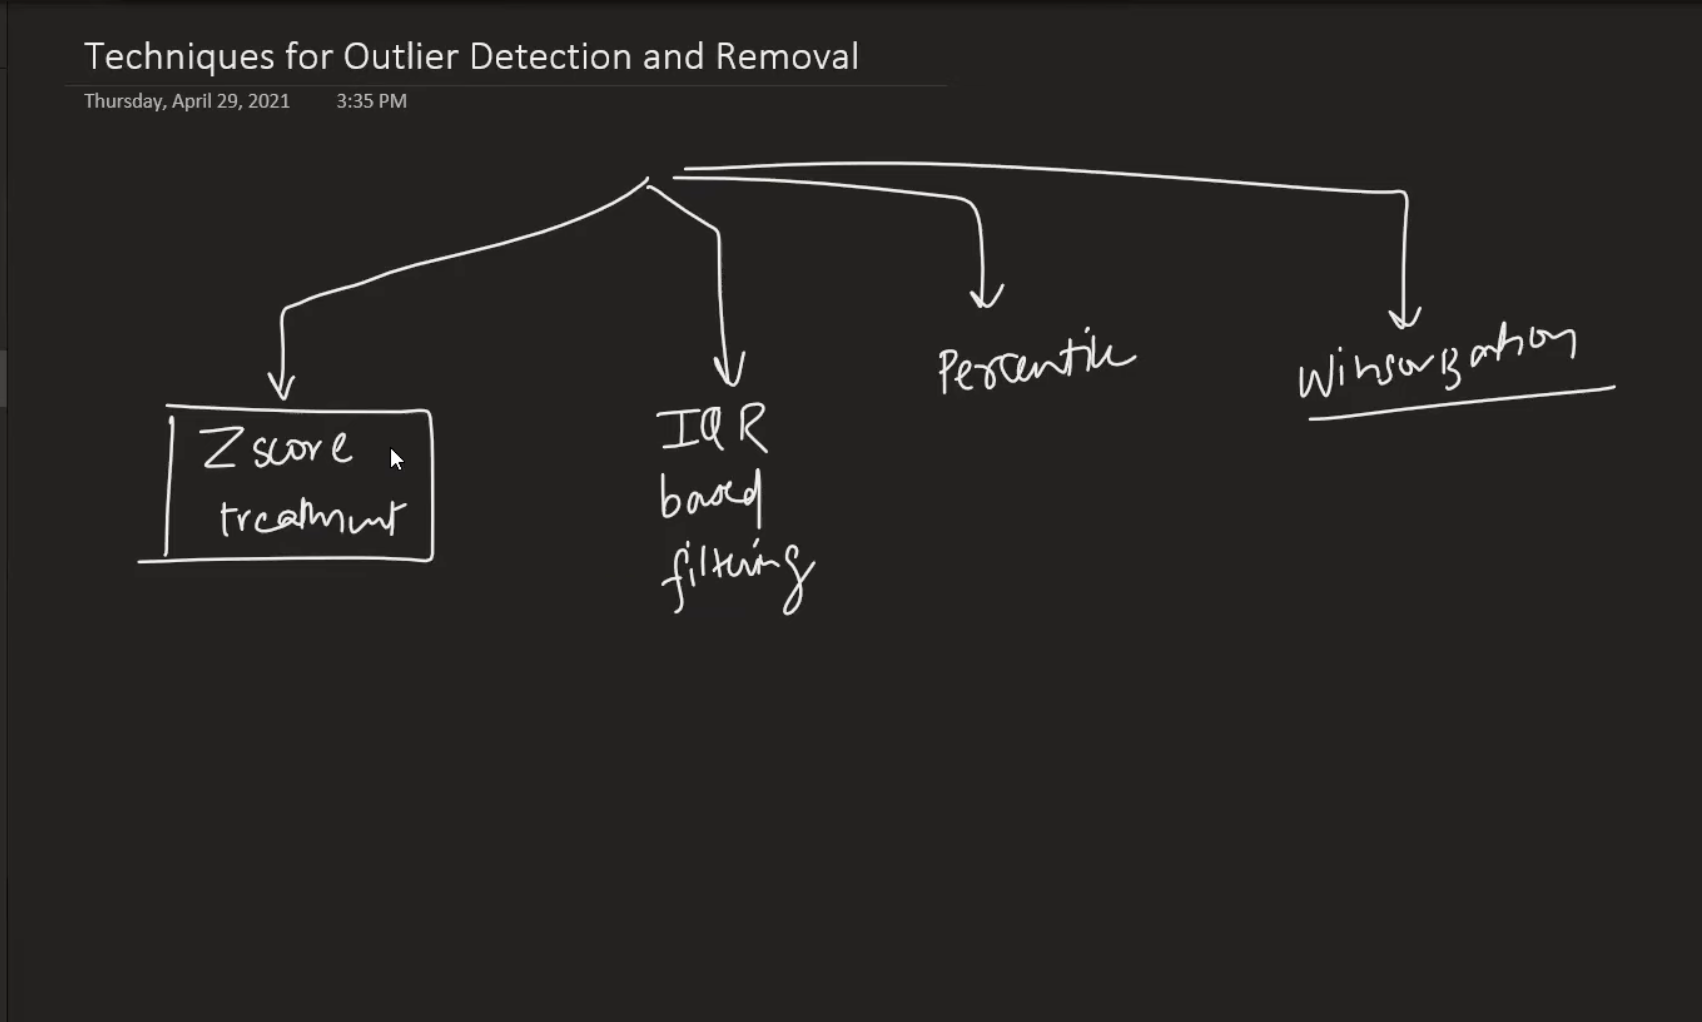 Techniques for Outlier Detection and Removal
Thursday, April 29, 2021 3:35 PM
Z score
treatment
IQR
based
filtering
Percentile
Winsorization